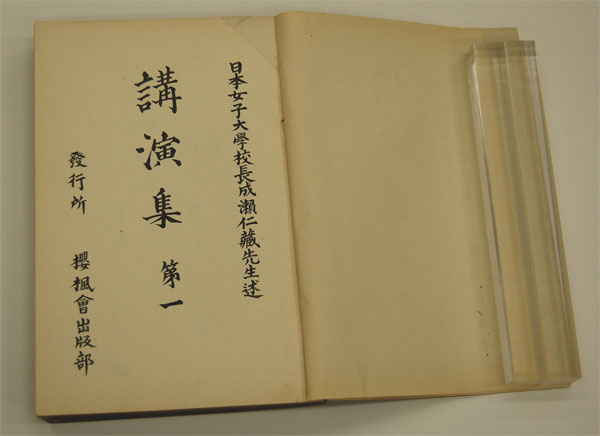 日本女子大學校長成瀬仁藏先生述
講演集 第一
發行所 櫻楓會出版部